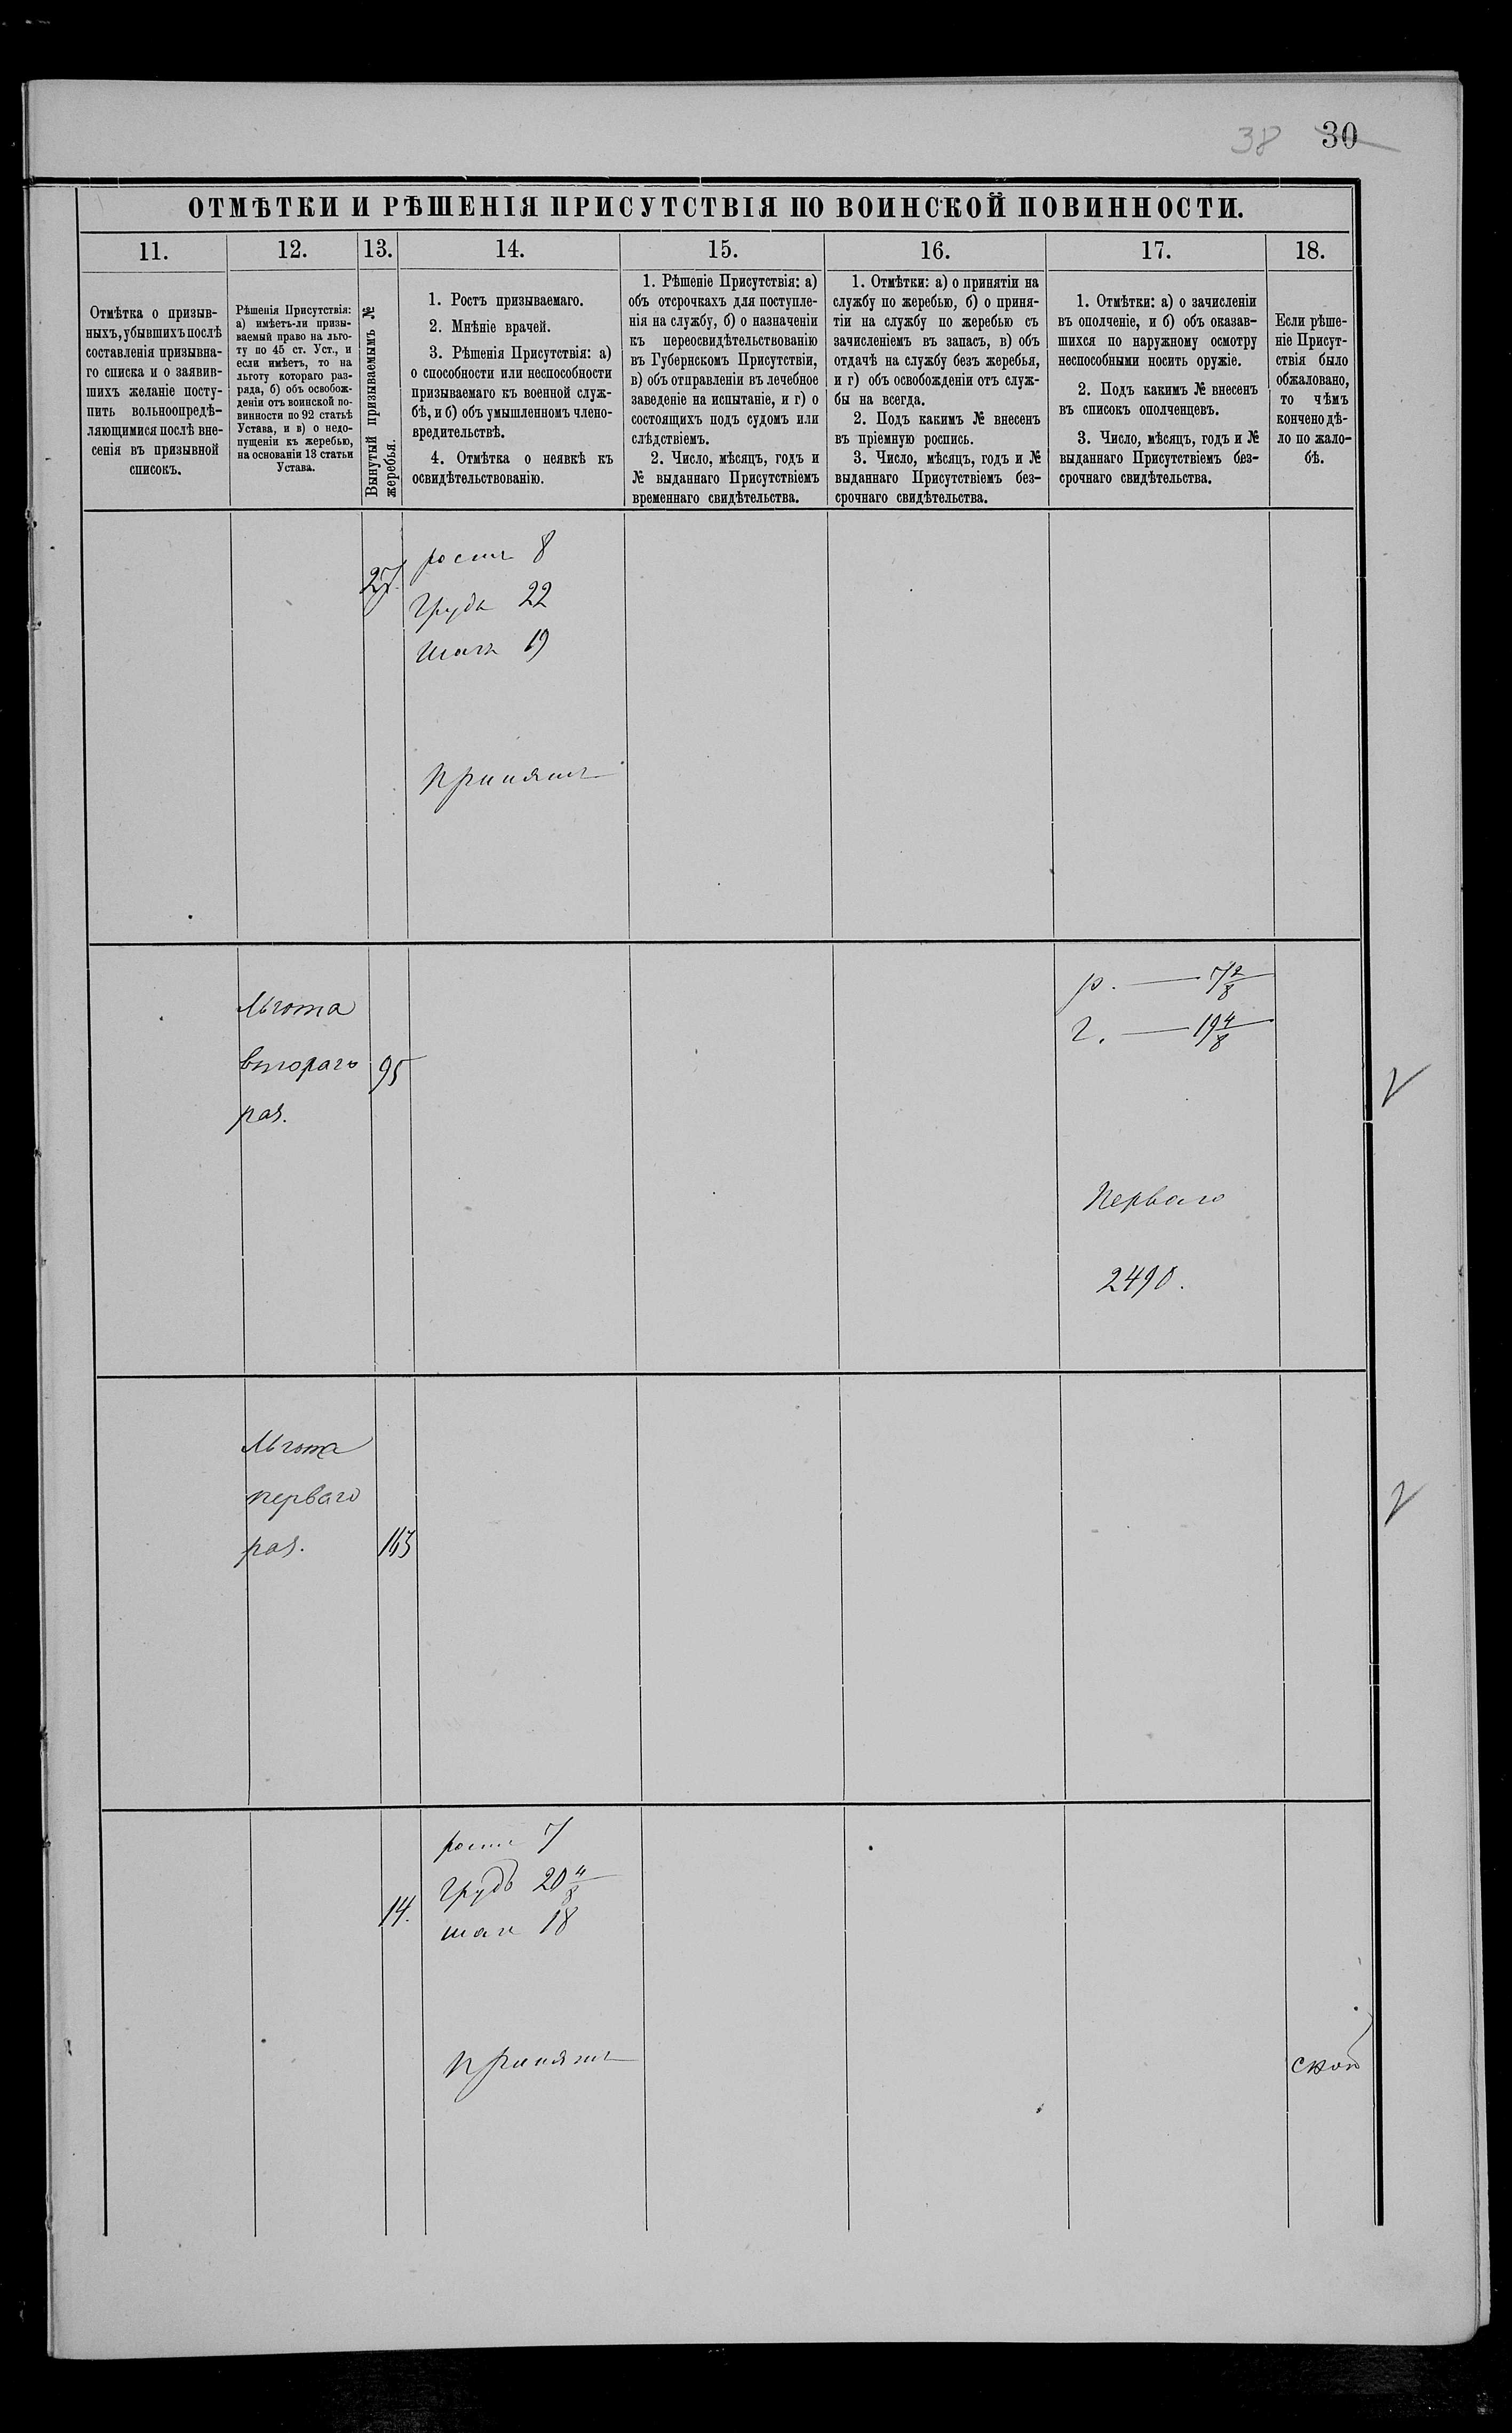 38 30
ОТМѢТКИ И РѢШЕНІЯ ПРИСУТСТВІЯ ПО ВОИНСКОЙ ПОВИННОСТИ.
11.
Отмѣтка о призыв-
ныхъ, убывшихъ послѣ
составленія призывна-
го списка и о заявив-
шихъ желаніе посту-
пить вольноопредѣ-
ляющимися послѣ вне-
сенія въ призывной
списокъ.
12.
Рѣшенія Присутствія:
а) имѣетъ-ли призы-
ваемый право на льго-
ту по 45 ст. Уст., и
если имѣетъ, то на
льготу котораго раз-
ряда, б) объ освобож-
деніи отъ воинской по-
винности по 92 статьѣ
Устава, и в) о недо-
пущеніи къ жеребью,
на основаніи 13 статьи
Устава.
13.
Вынутый призываемымъ №
жеребья.
14.
1. Ростъ призываемаго.
2. Мнѣніе врачей.
3. Рѣшенія Присутствія: а)
о способности или неспособности
призываемаго къ военной служ-
бѣ, и б) объ умышленномъ члено-
вредительствѣ.
4. Отмѣтка о неявкѣ къ
освидѣтельствованію.
15.
1. Рѣшеніе Присутствія: а)
объ отсрочкахъ для поступле-
нія на службу, б) о назначеніи
къ переосвидѣтельствованію
въ Губернскомъ Присутствіи,
в) объ отправленіи въ лечебное
заведеніе на испытаніе, и г) о
состоящихъ подъ судомъ или
слѣдствіемъ.
2. Число, мѣсяцъ, годъ и
№ выданнаго Присутствіемъ
временнаго свидѣтельства.
16.
1. Отмѣтки: а) о принятіи на
службу по жеребью, б) о приня-
тіи на службу по жеребью съ
зачисленіемъ въ запасъ, в) объ
отдачѣ на службу безъ жеребья,
и г) объ освобожденіи отъ служ-
бы на всегда.
2. Подъ какимъ № внесенъ
въ пріемную роспись.
3. Число, мѣсяцъ, годъ и №
выданнаго Присутствіемъ без-
срочнаго свидѣтельства.
17.
1. Отмѣтки: а) о зачисленіи
въ ополченіе, и б) объ оказав-
шихся по наружному осмотру
неспособными носить оружіе.
2. Подъ какимъ № внесенъ
въ списокъ ополченцевъ.
3. Число, мѣсяцъ, годъ и №
выданнаго Присутствіемъ без-
срочнаго свидѣтельства.
18.
Если рѣше-
ніе Присут-
ствія было
обжаловано,
то чѣмъ
кончено дѣ-
ло по жало-
бѣ.
27.
ростъ 8
Грудь 22
Шагъ 19
Принятъ
Льгота
втораго
раз.
95
р. — 7 2/8
г. — 19 4/8
Перваго
2490.
Льгота
перваго
раз.
163
14.
ростъ 7
Грудь 20 4/8
шагъ 18
Принятъ